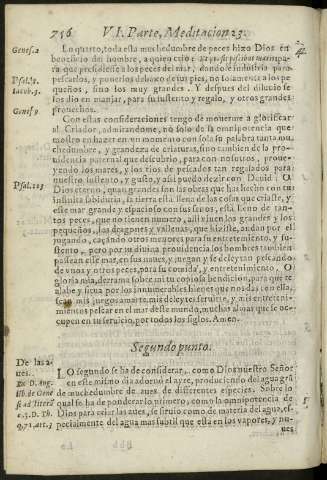 756 VI. Parte, Meditacion 23.
Genes. 2
Lo quarto, toda esta muchedumbre de peces hizo Dios en
beneficio del hombre, a quien criò:
ra que presidiesse a los peces del mar, dandole industria para
Psal. 8.
pescarlos, y ponerlos debaxo de sus pies, no solamente a los pe-
Iacob. 3.
queños, sino los muy grandes. Y despues del diluuio se
Genes. 9
los dio en manjar, para su sustento y regalo, y otros grandes
prouechos.
Con estas consideraciones tengo de mouerme a glorificar
al Criador, admirandome, no solo de su omnipotencia que
mostro en hazer en vn momento con sola su palabra tanta mu-
chedumbre, y grandeza de criaturas, sino tambien de la pro-
uidencia paternal que descubrio, para con nosotros, proue-
yendo los mares, y los rios de pescados tan regalados para
nuestro sustento, y gusto, y assi puedo dezir con Dauid: O
Psal. 103
Dios eterno, quan grandes son las obras que has hecho con tu
infinita sabiduria, la tierra està llena de las cosas que criaste, y
este mar grande y espacioso con sus senos, està lleno de tan-
tos peces, que no tienen numero, alli viuen los grandes y los
pequeños, los dragones y vallenas, que hiziste, andan por el
jugando, caçando otros menores para su entretenimiento, y su-
stento, pero por tu diuina prouidencia los hombres tambien
passean esse mar, en sus naues, y juegan y se deleytan pescando
de vnos y otros peces, para su comida, y entretenimiento. O
gloria mia, derrama sobre mi tu copiosa bendicion, para que te
alabe y sirua por los innumerables bienes que nos das con ella,
sean mis juegos amarte, mis deleytes seruirte, y mis entreteni-
mientos pescar en el mar deste mundo, muchas almas que se oc-
cupen en tu seruicio, por todos los siglos. Amen.
Segundo punto.
De las a-
ues.
LO segundo se ha de considerar, como Dios nuestro Señor
Ex D. Aug.
en este mismo dia adornò el ayre, produciendo del agua grã
lib. de Gene
de muchedumbre de aues de diferentes especies. Sobre lo
qual se ha de ponderar lo primero, como la omnipotencia de
Dios para criar las aues, se siruio como de materia del agua, es-
q. 71. art. 1
pecialmente del agua mas subtil que està en los vapores, y nu-
ues